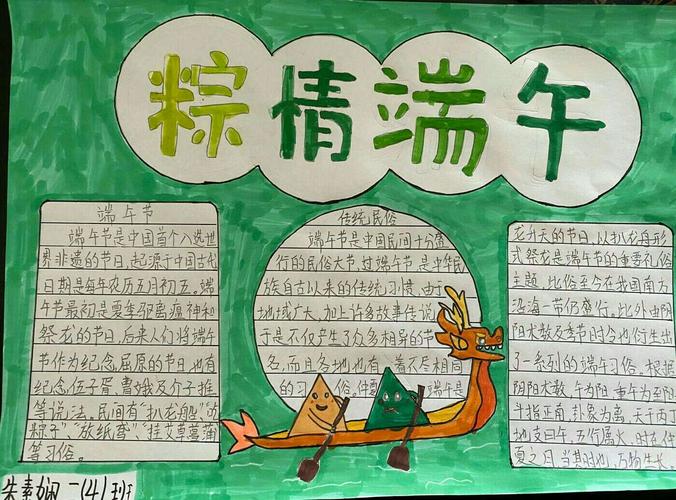 粽情端午
端午节
端午节是中国首个入选世
界非遗的节日,起源于中国古代
日期是每年农历五月初五。端
午节最初是夏季驱离瘟神和
祭龙的节日,后来人们将端午
节作为纪念屈原的节日也有
纪念伍子胥曹娥及介子推
等说法。民间有“扒龙船”“
粽子”、“放纸鸢”、“挂艾草菖蒲
等习俗。
传统民俗
端午节是中国民间十分盛
行的民俗大节,过端午节是中华民
族自古以来的传统习惯,由于
地域广大,加上许多故事传说
于是不仅产生了众多相异的节
名,而且各地也有着不尽相同
的习俗。仲夏端午是
龙升天的节日,以扒龙舟形
式祭龙是端午节的重要礼俗
主题,此俗至今在我国南方
沿海一带仍盛行。此外由阴
阳术数及季节时令也衍生出
了一系列的端午习俗。根据
阴阳术数,午为阳,重午为至阳
午指正南,卦象为离,天干丙丁
地支曰午,五行属火,时在仲
夏之月,当其时也,万物生长。
朱素娴 一(4)班